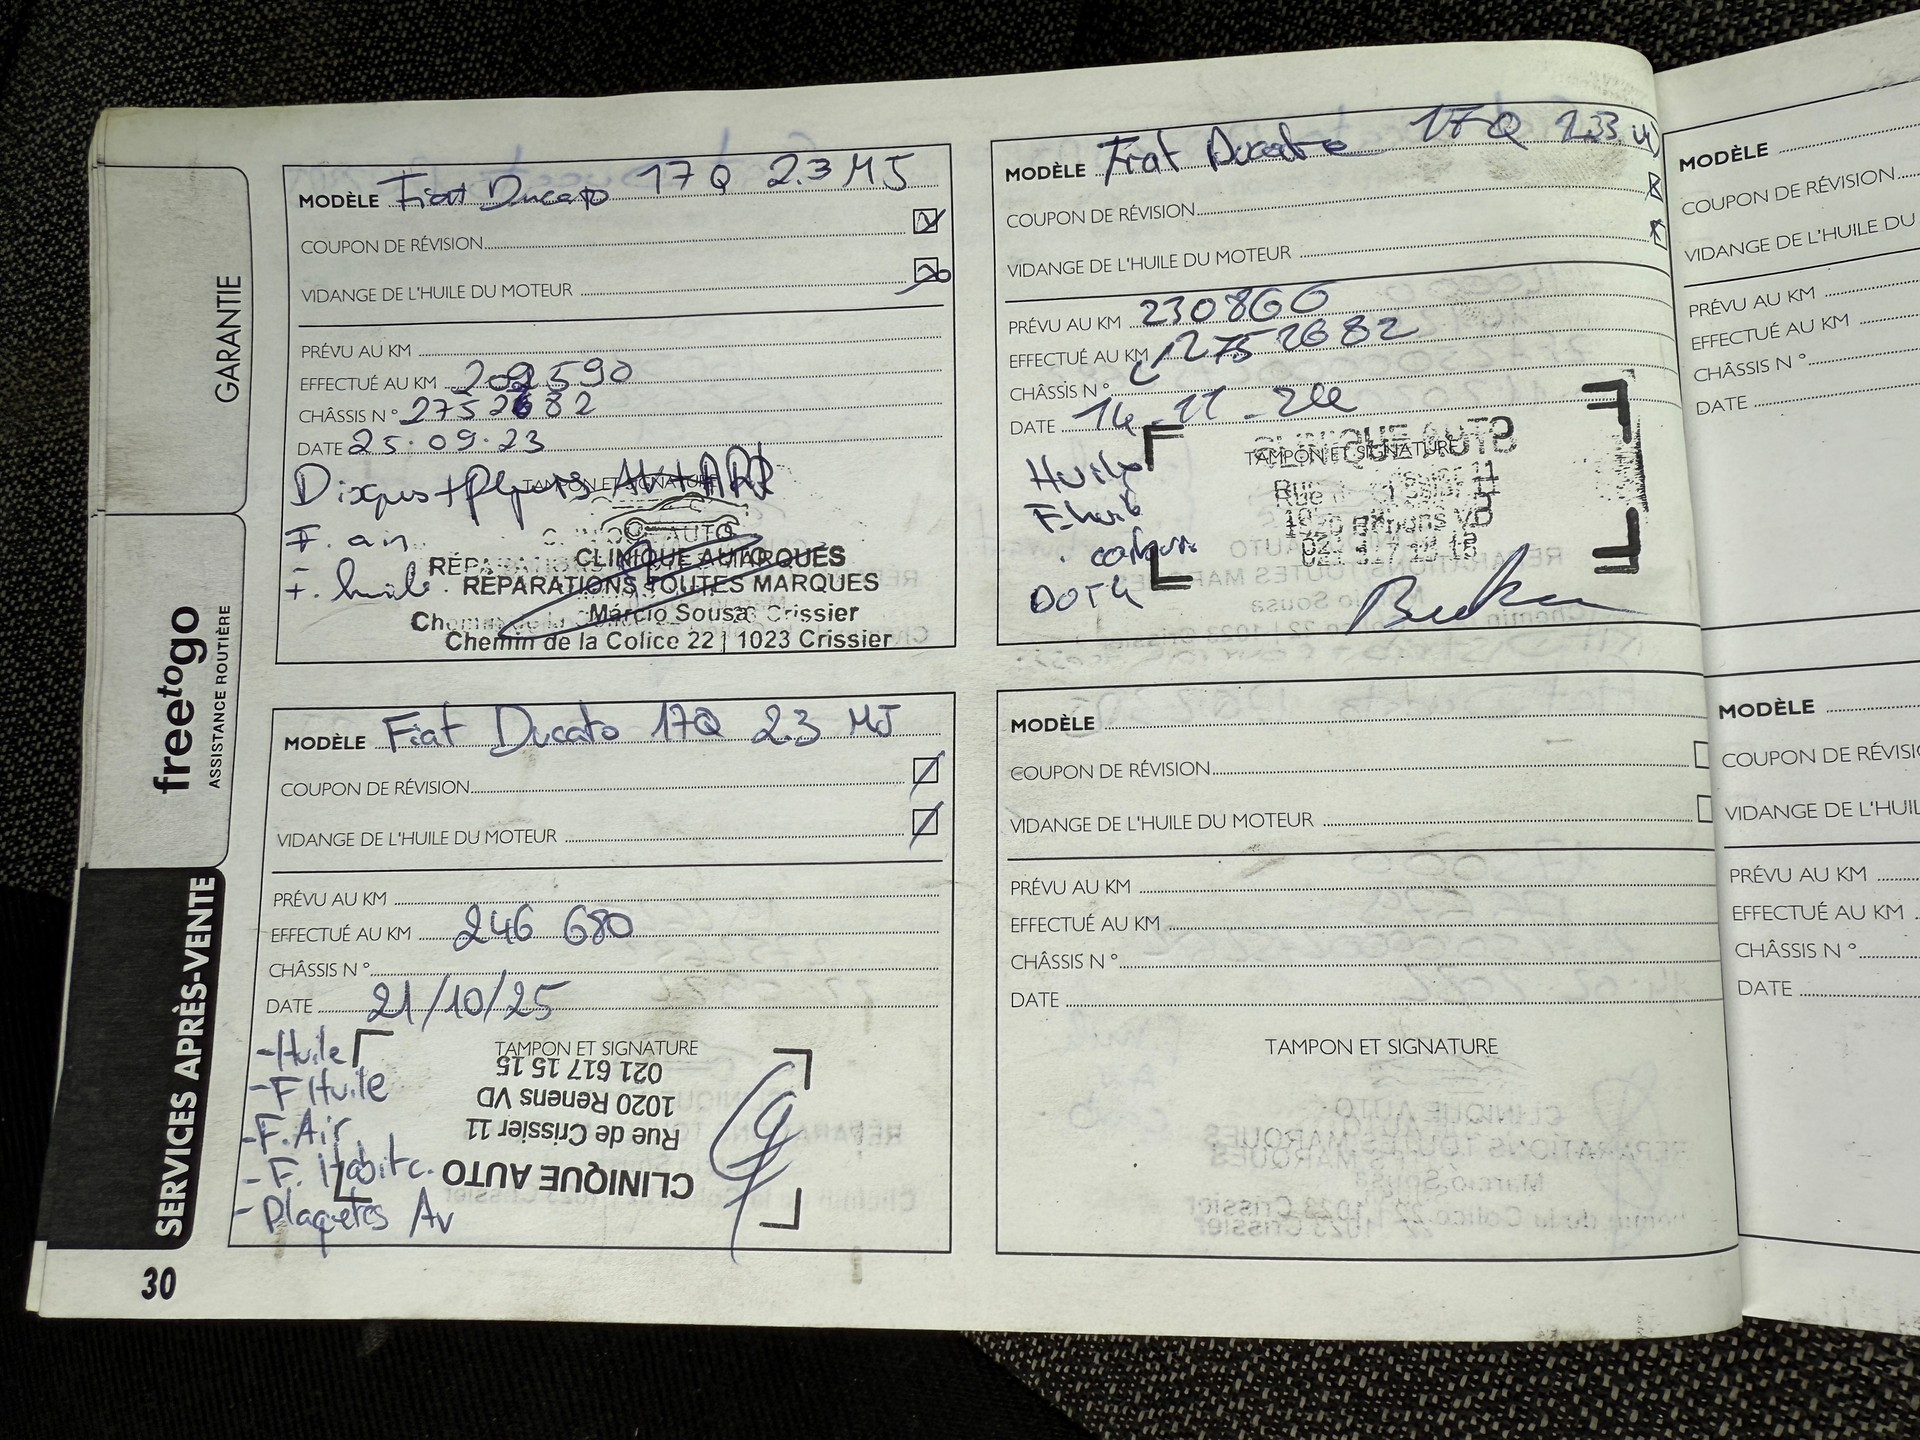 GARANTIE
freetogo
ASSISTANCE ROUTIÈRE
SERVICES APRÈS-VENTE
30
MODÈLE Fiat Ducato 17Q 2.3 MJ
COUPON DE RÉVISION
VIDANGE DE L'HUILE DU MOTEUR
PRÉVU AU KM
EFFECTUÉ AU KM 202590
CHÂSSIS N° 2752682
DATE 25.09.23
TAMPON ET SIGNATURE
CLINIQUE AUTO
RÉPARATIONS TOUTES MARQUES
Márcio Sousa
Chemin de la Colice 22 | 1023 Crissier
MODÈLE Fiat Ducato 17Q 2.3 MJ
COUPON DE RÉVISION
VIDANGE DE L'HUILE DU MOTEUR
PRÉVU AU KM 230860
EFFECTUÉ AU KM 2752682
CHÂSSIS N°
DATE 14-11-24
TAMPON ET SIGNATURE
CLINIQUE AUTO
Rue de Crissier 11
1020 Renens VD
021 617 15 15
Huile
F. huile
DOT4
MODÈLE Fiat Ducato 17Q 2.3 MJ
COUPON DE RÉVISION
VIDANGE DE L'HUILE DU MOTEUR
PRÉVU AU KM
EFFECTUÉ AU KM 246 680
CHÂSSIS N°
DATE 21/10/25
TAMPON ET SIGNATURE
-Huile
-F Huile
-F. Air
-F. Habitc.
-Plaquetes Av
CLINIQUE AUTO
Rue de Crissier 11
1020 Renens VD
021 617 15 15
MODÈLE
COUPON DE RÉVISION
VIDANGE DE L'HUILE DU MOTEUR
PRÉVU AU KM
EFFECTUÉ AU KM
CHÂSSIS N°
DATE
TAMPON ET SIGNATURE
MODÈLE
COUPON DE RÉVISION
VIDANGE DE L'HUILE DU
PRÉVU AU KM
EFFECTUÉ AU KM
CHÂSSIS N°
DATE
MODÈLE
COUPON DE RÉVISI
VIDANGE DE L'HUIL
PRÉVU AU KM
EFFECTUÉ AU KM
CHÂSSIS N°
DATE